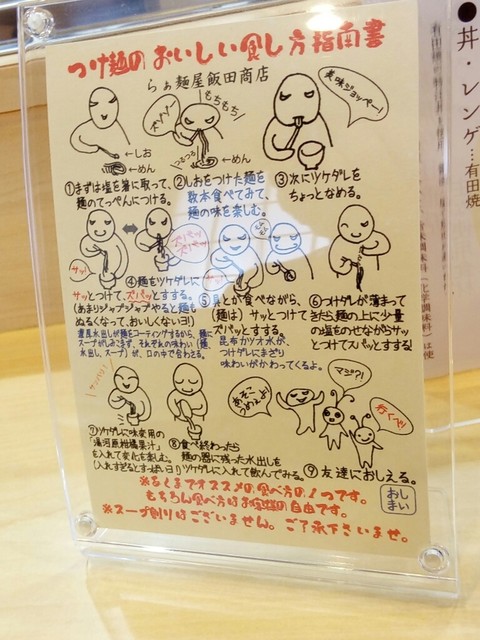 つけ麺のおいしい食し方指南書
らぁ麺屋飯田商店
もちもち
つるつる
美味ジョッペー!
←しお
←めん
←めん
①まずは塩を箸に取って、
麺のてっぺんにつける。
②しおをつけた麺を
数本食べてみて、
麺の味を楽しむ。
③次にツケダレを
ちょっとなめる。
サッ!
④麺をツケダレに
サッとつけて、ズバッとすする。
(あまりジャブジャブやると麺も
ぬるくなって、おいしくないヨ!)
昆布水出しが麺をコーティングするから、麺に
スープがしみこまず、それぞれの味わい(麺、
水出し、スープ)が、口の中で合わさる。
⑤具とか食べながら、
(麺は)サッとつけて
ズバッとすする。
昆布カツオ水が、
つけダレにまざり
味わいがかわってくるよ。
⑥つけダレが薄まって
きたら麺の上に少量
の塩をのせながらサッ
とつけてズバッとすする!
⑦ツケダレに味変用の
「湯河原柑橘果汁」
を入れて変化を楽しむ。
(入れすぎるとすっぱいヨ!)
⑧食べ終わったら
麺の器に残った水出しを
ツケダレに入れて飲んでみる。
あそこ
うめぇよ
マジ?!
行くで!
⑨友達におしえる。
※あくまでオススメの食べ方の1つです。
もちろん食べ方はお客様の自由です。
※スープ割りはございません。ご了承下さいませ。
おし
まい
●丼・レンゲ…有田焼